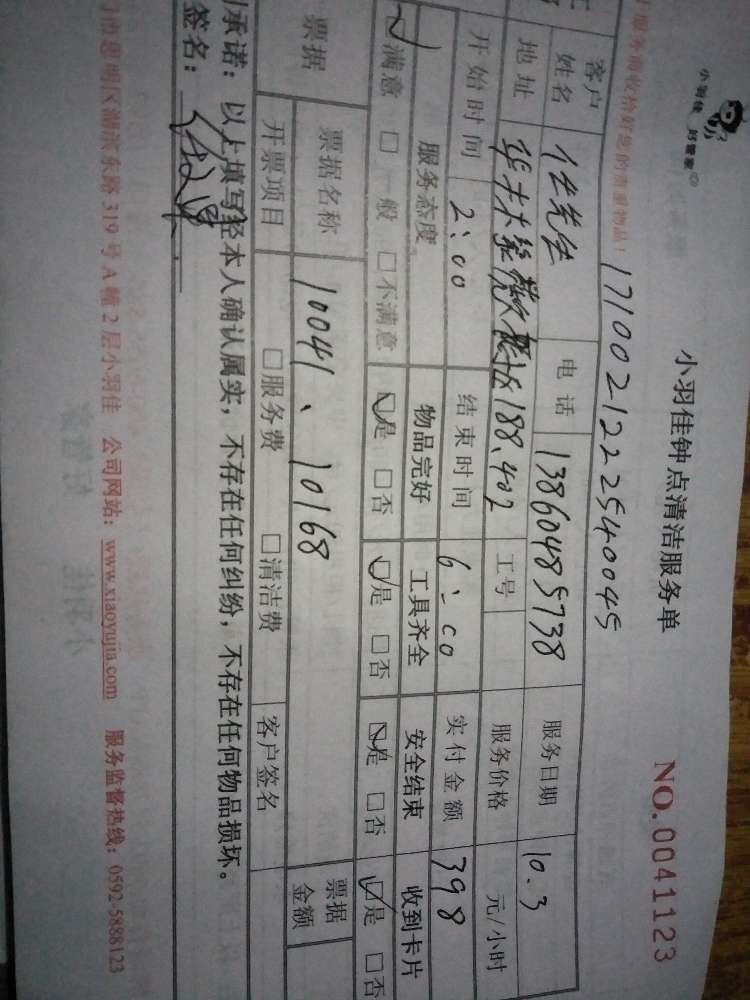 小羽佳 好管家
小羽佳钟点清洁服务单
NO.0041123
服务前收拾好您的贵重物品!
171002122540045
客户姓名 任先生 电话 13860485738 服务日期 10.3
地址 188.402 工号 服务价格 元/小时
开始时间 2:00 结束时间 6:00 实付金额 398
服务态度 物品完好 工具齐全 安全结束 收到卡片
☑满意 □一般 □不满意 ☑是 □否 ☑是 □否 ☑是 □否 ☑是 □否
票据 票据名称 10041、10168 票据金额
开票项目 □服务费 □清洁费 客户签名
承诺:以上填写经本人确认属实,不存在任何纠纷,不存在任何物品损坏。
签名:
门市思明区湖滨东路 319 号 A 幢 2 层小羽佳 公司网站:www.xiaoyujia.com 服务监督热线:0592-5888123